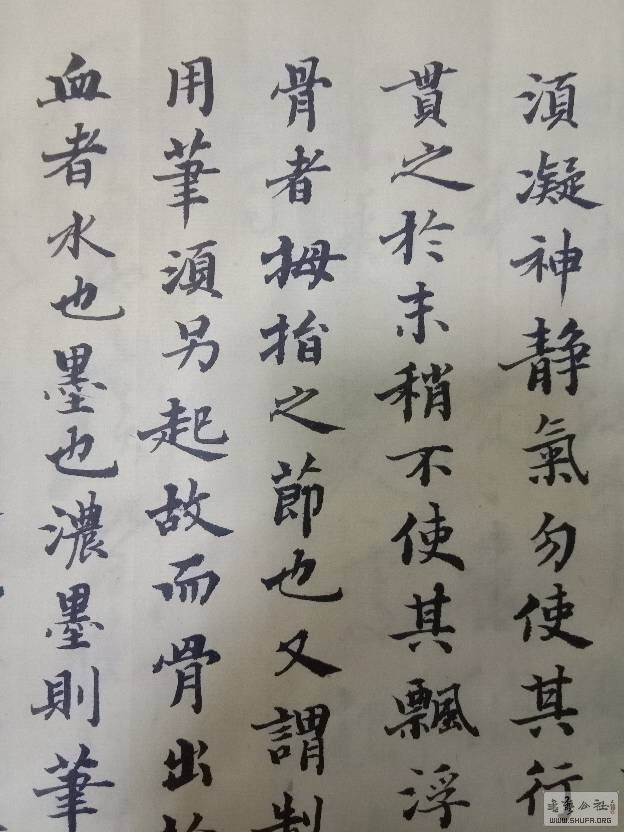 須凝神静氣勿使其行
貫之於末稍不使其飄浮
骨者拇指之節也又謂制
用筆須另起故而骨出於
血者水也墨也濃墨則筆
WWW.SHUFA.ORG